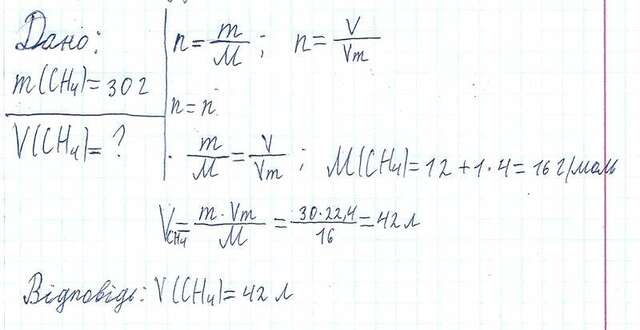 Дано:
m(CH₄)=30 г
V(CH₄)= ?
n = m/M ; n = V/Vm
n = n
m/M = V/Vm ; M(CH₄)=12+1·4=16 г/моль
V CH₄ = m·Vm/M = 30·22,4/16 = 42 л
Відповідь: V(CH₄)=42 л